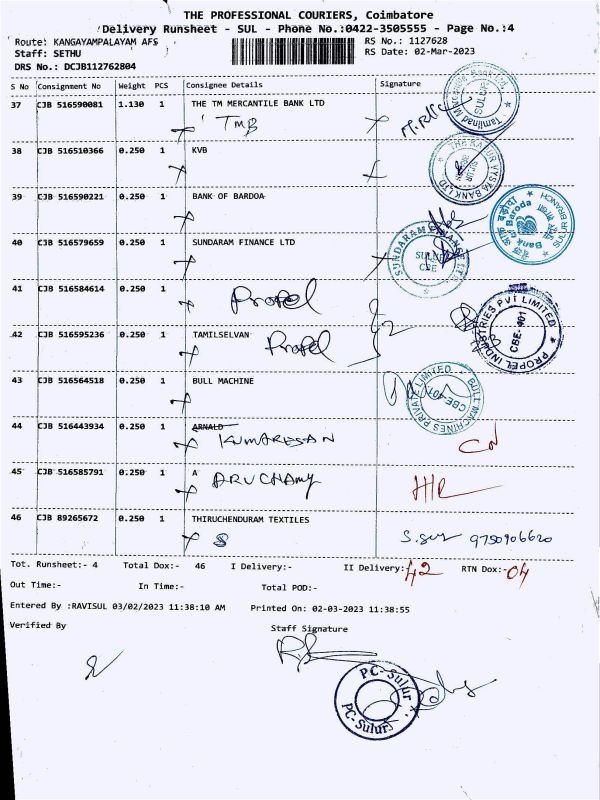 THE PROFESSIONAL COURIERS, Coimbatore
Delivery Runsheet - SUL - Phone No.:0422-3505555 - Page No.:4
Route: KANGAYAMPALAYAM AFS RS No.: 1127628
Staff: SETHU RS Date: 02-Mar-2023
DRS No.: DCJB112762804
S No Consignment No Weight PCS Consignee Details Signature
37 CJB 516590081 1.130 1 THE TM MERCANTILE BANK LTD
TMB
38 CJB 516510366 0.250 1 KVB
39 CJB 516590221 0.250 1 BANK OF BARDOA
40 CJB 516579659 0.250 1 SUNDARAM FINANCE LTD
SULUR
CBE
41 CJB 516584614 0.250 1
Propel
42 CJB 516595236 0.250 1 TAMILSELVAN
Propel
PROPEL INDUSTRIES PVT LIMITED
CBE-401
43 CJB 516564518 0.250 1 BULL MACHINE
BULL MACHINES PRIVATE LIMITED
CBE-401
44 CJB 516443934 0.250 1 ARNALD
KUMARESAN
45 CJB 516585791 0.250 1 A
ARUCHAMY
46 CJB 89265672 0.250 1 THIRUCHENDURAM TEXTILES
S 9750906620
Tot. Runsheet:- 4 Total Dox:- 46 I Delivery:- II Delivery:- 42 RTN Dox:- 04
Out Time:- In Time:- Total POD:-
Entered By :RAVISUL 03/02/2023 11:38:10 AM Printed On: 02-03-2023 11:38:55
Verified By Staff Signature
PC-Sulur
PC-Sulur